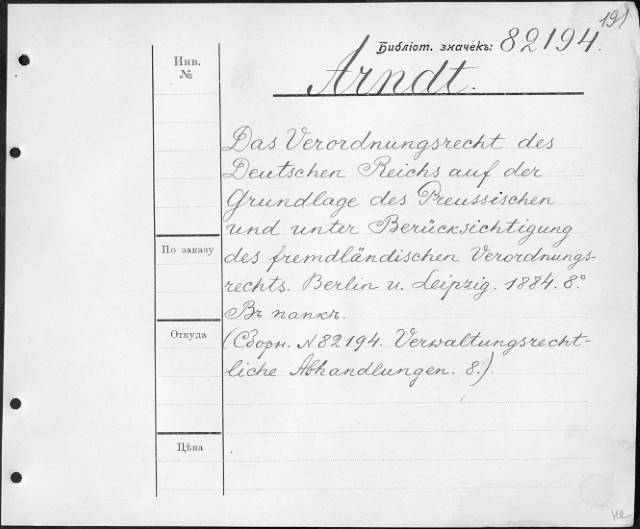 191
Библіот. значекъ: 82194.
Arndt.
Инв.
№
Das Verordnungsrecht des
Deutschen Reichs auf der
Grundlage des Preussischen
und unter Berücksichtigung
По заказу
des fremdländischen Verordnungs-
rechts. Berlin u. Leipzig. 1884. 8.°
Въ папкѣ.
Откуда
(Сборн. N 82194. Verwaltungsrecht-
liche Abhandlungen. 8.).
Цѣна